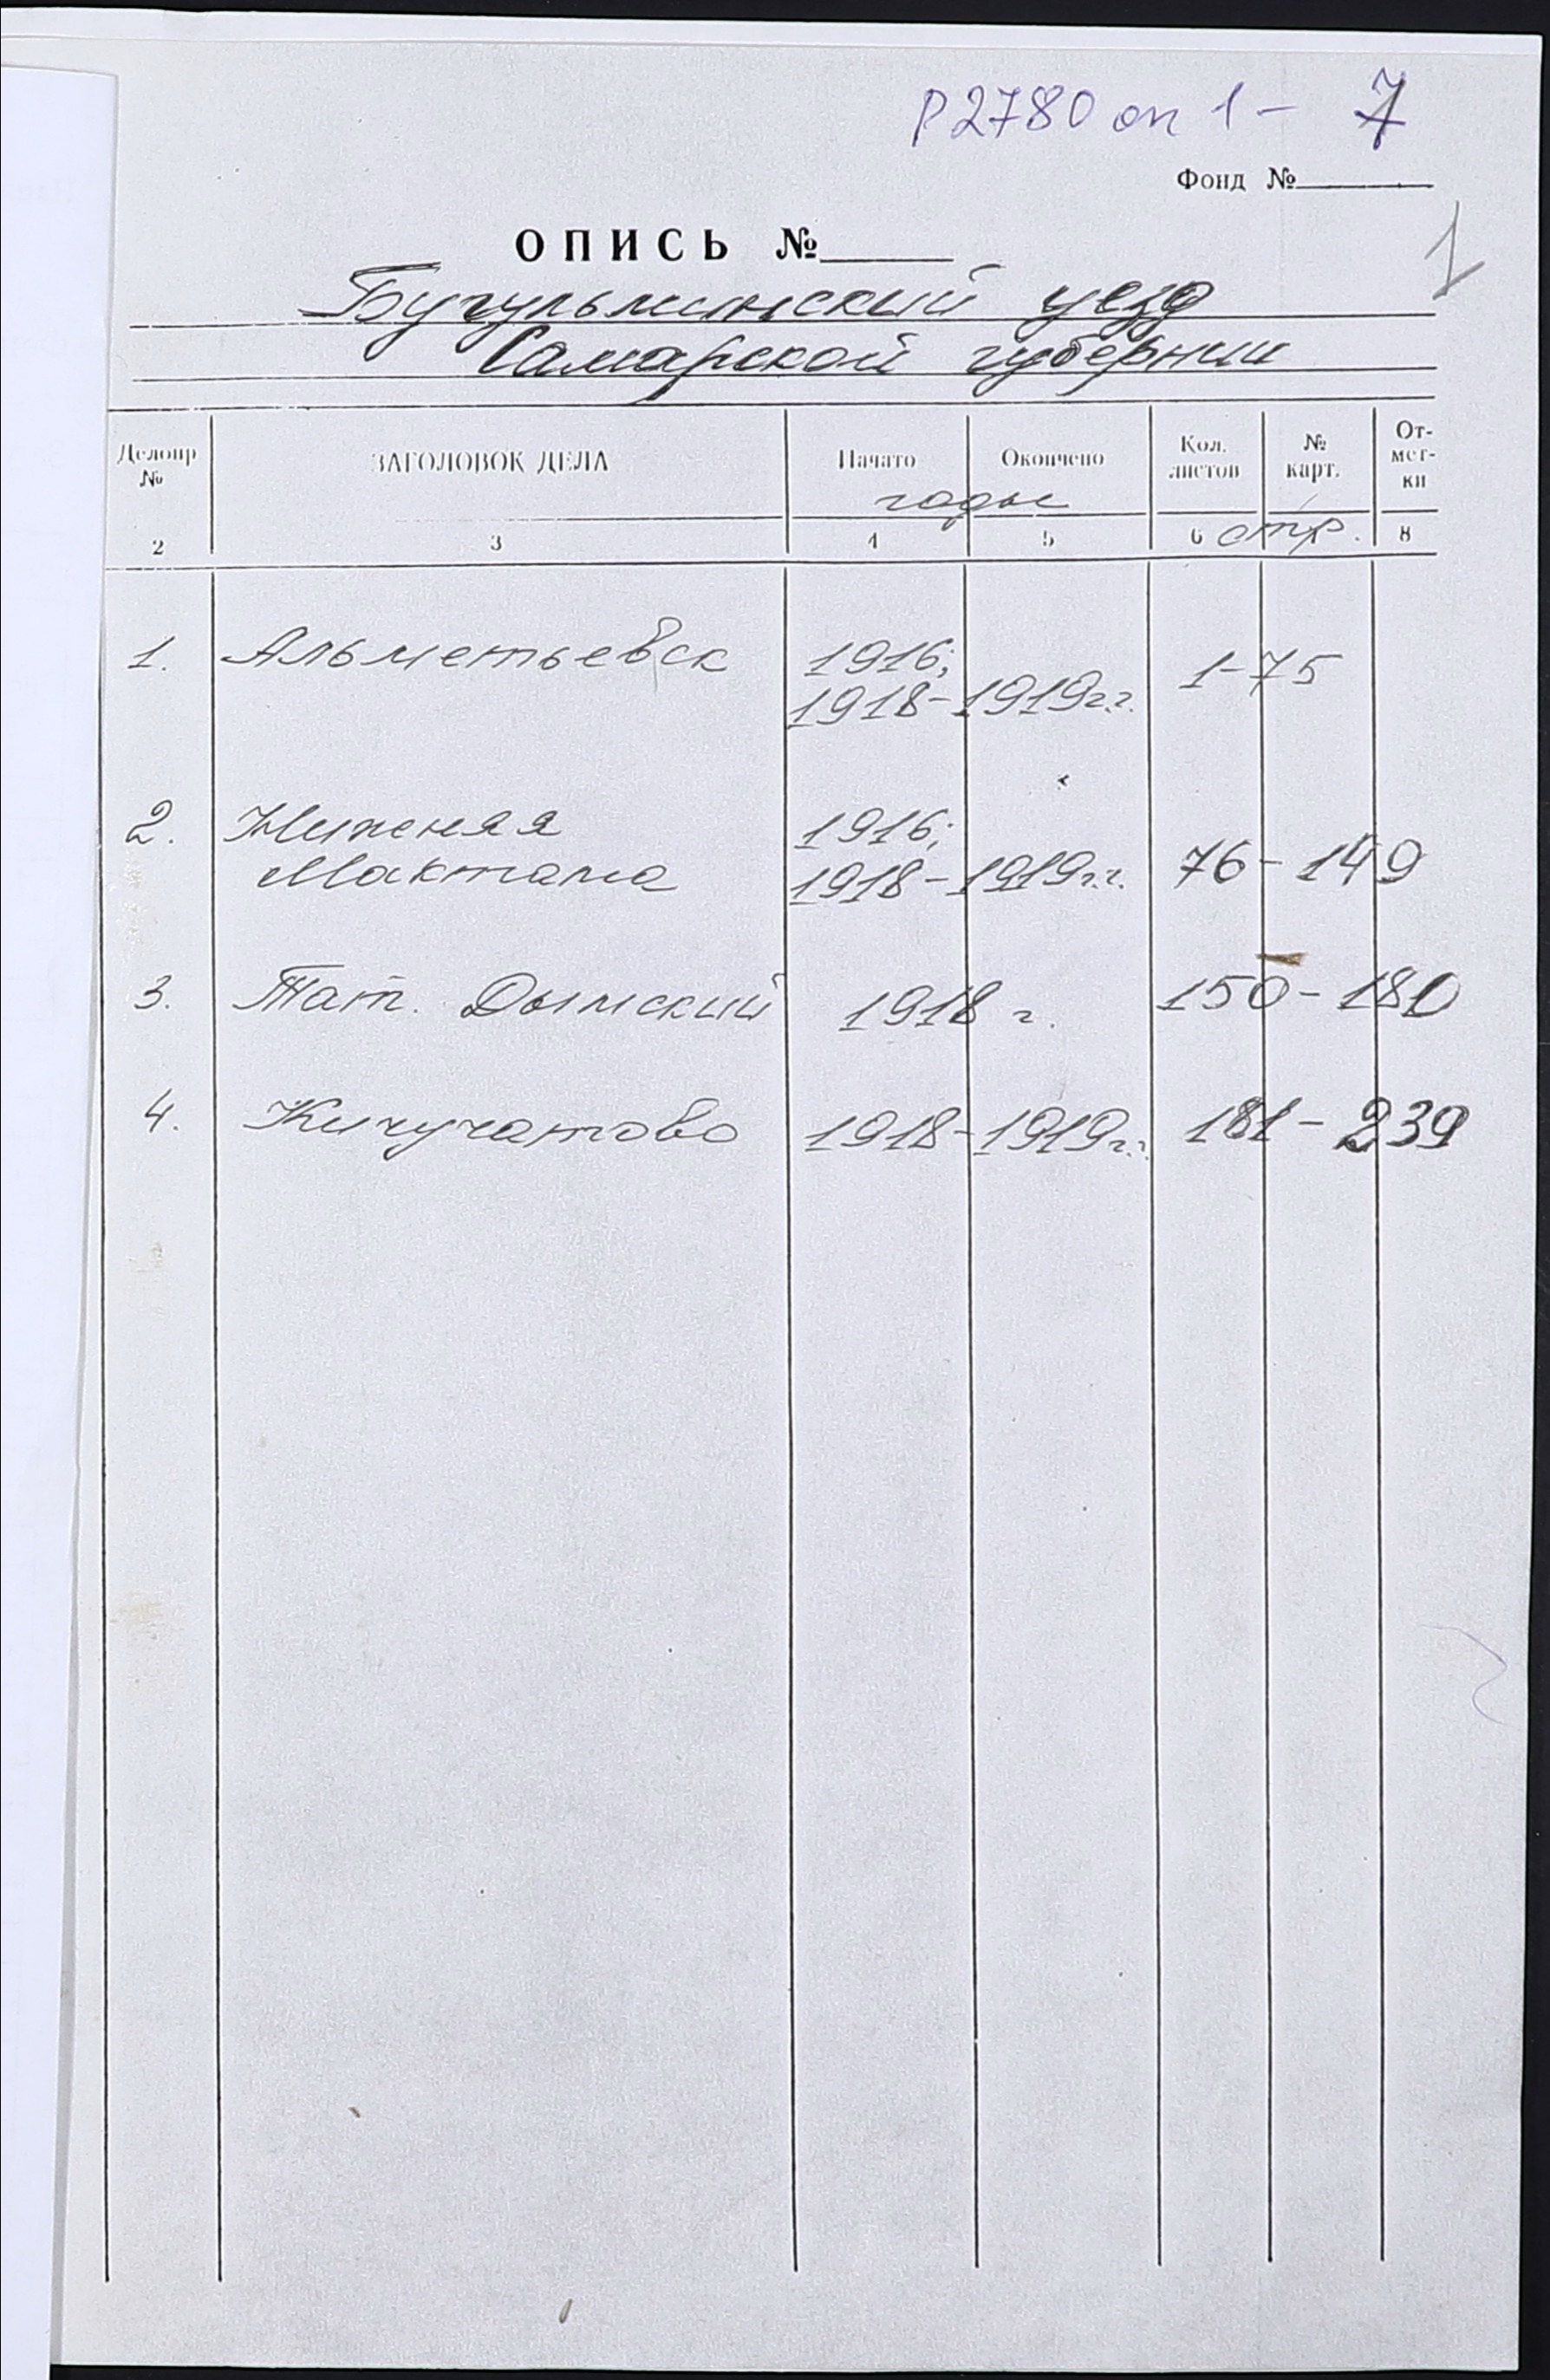 Р2780 оп 1 - 7
Фонд №
1
ОПИСЬ №
Бугульминский уезд
Самарской губернии
Делопр № ЗАГОЛОВОК ДЕЛА Начато Окончено Кол. листов № карт. От-мет-ки
годы
2 3 4 5 6 стр. 8
1. Альметьевск 1916; 1918-1919г.г. 1-75
2. Нижняя Мактама 1916; 1918-1919г.г. 76-149
3. Тат. Дымский 1918 г. 150-180
4. Кичучатово 1918-1919г.г. 181-239